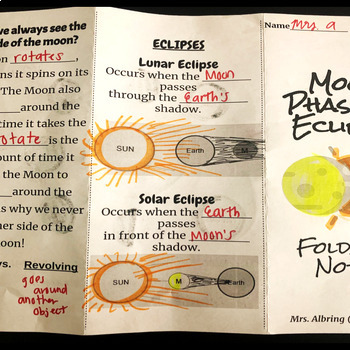 ve always see the
de of the moon?
n rotates,
ns it spins on its
The Moon also
around the
time it takes the
rotate is the
ount of time it
the Moon to
around the
s why we never
her side of the
oon!
vs. Revolving
goes
around
another
object
ECLIPSES
Lunar Eclipse
Occurs when the Moon
passes
through the Earth's
shadow.
SUN
Earth
M
Solar Eclipse
Occurs when the Earth
passes
in front of the Moon's
shadow.
SUN
M
Earth
Name Mrs. a
Moo
Phas
Ecli
Fold
No
Mrs. Albring (